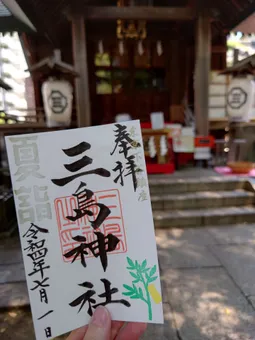 奉拝
三島神社
夏詣
令和四年七月一日